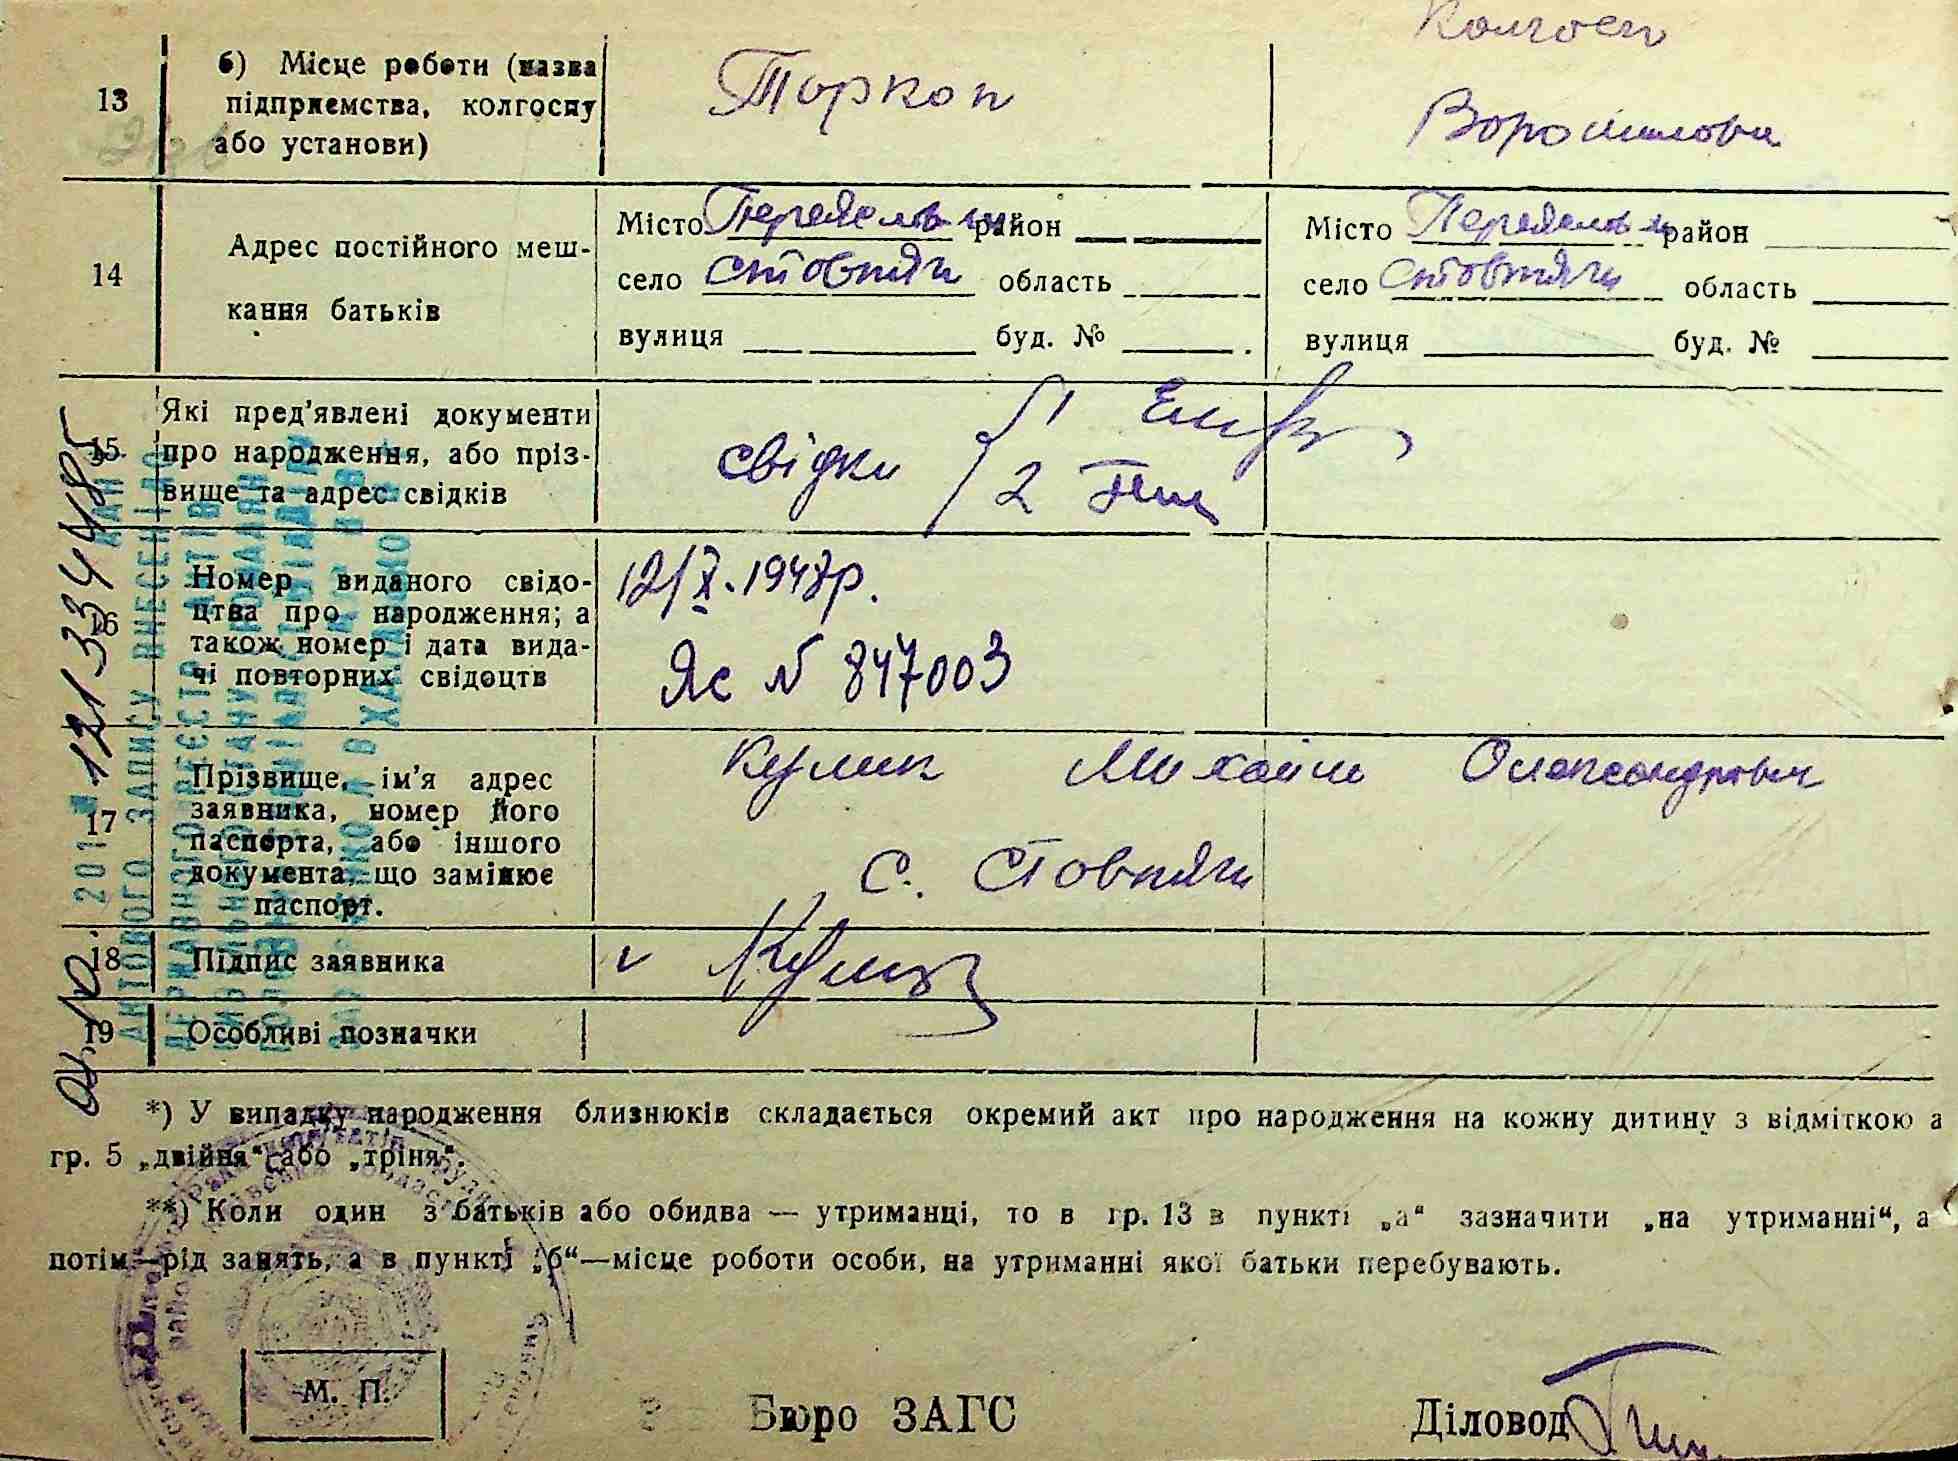 Колгосп
13 б) Місце роботи (назва Торкоп Ворошилова
підприємства, колгоспу
або установи)
14 Адрес постійного меш-
кання батьків
Місто Переяслов район
село Стовпяги область
вулиця буд. №
Місто Переяслов район
село Стовпяги область
вулиця буд. №
15 Які пред'явлені документи
про народження, або пріз-
вище та адрес свідків
свідки 1
2
16 Номер виданого свідо-
цтва про народження; а
також номер і дата вида-
чі повторних свідоцтв
12/X. 1947р.
Яс № 847003
17 Прізвище, ім'я адрес
заявника, номер його
паспорта, або іншого
документа, що замінює
паспорт.
Кулик Михайло Олександрович
с. Стовпяги
18 Підпис заявника
19 Особливі позначки
*) У випадку народження близнюків складається окремий акт про народження на кожну дитину з відміткою а
гр. 5 „двійня“ або „тріня“.
**) Коли один з батьків або обидва — утриманці, то в гр. 13 в пункті „а“ зазначити „на утриманні“, а
потім—рід занять, а в пункті „б“—місце роботи особи, на утриманні якої батьки перебувають.
М. П.
Бюро ЗАГС
Діловод
АКТОВОГО ЗАПИСУ ВНЕСЕНІ ДО